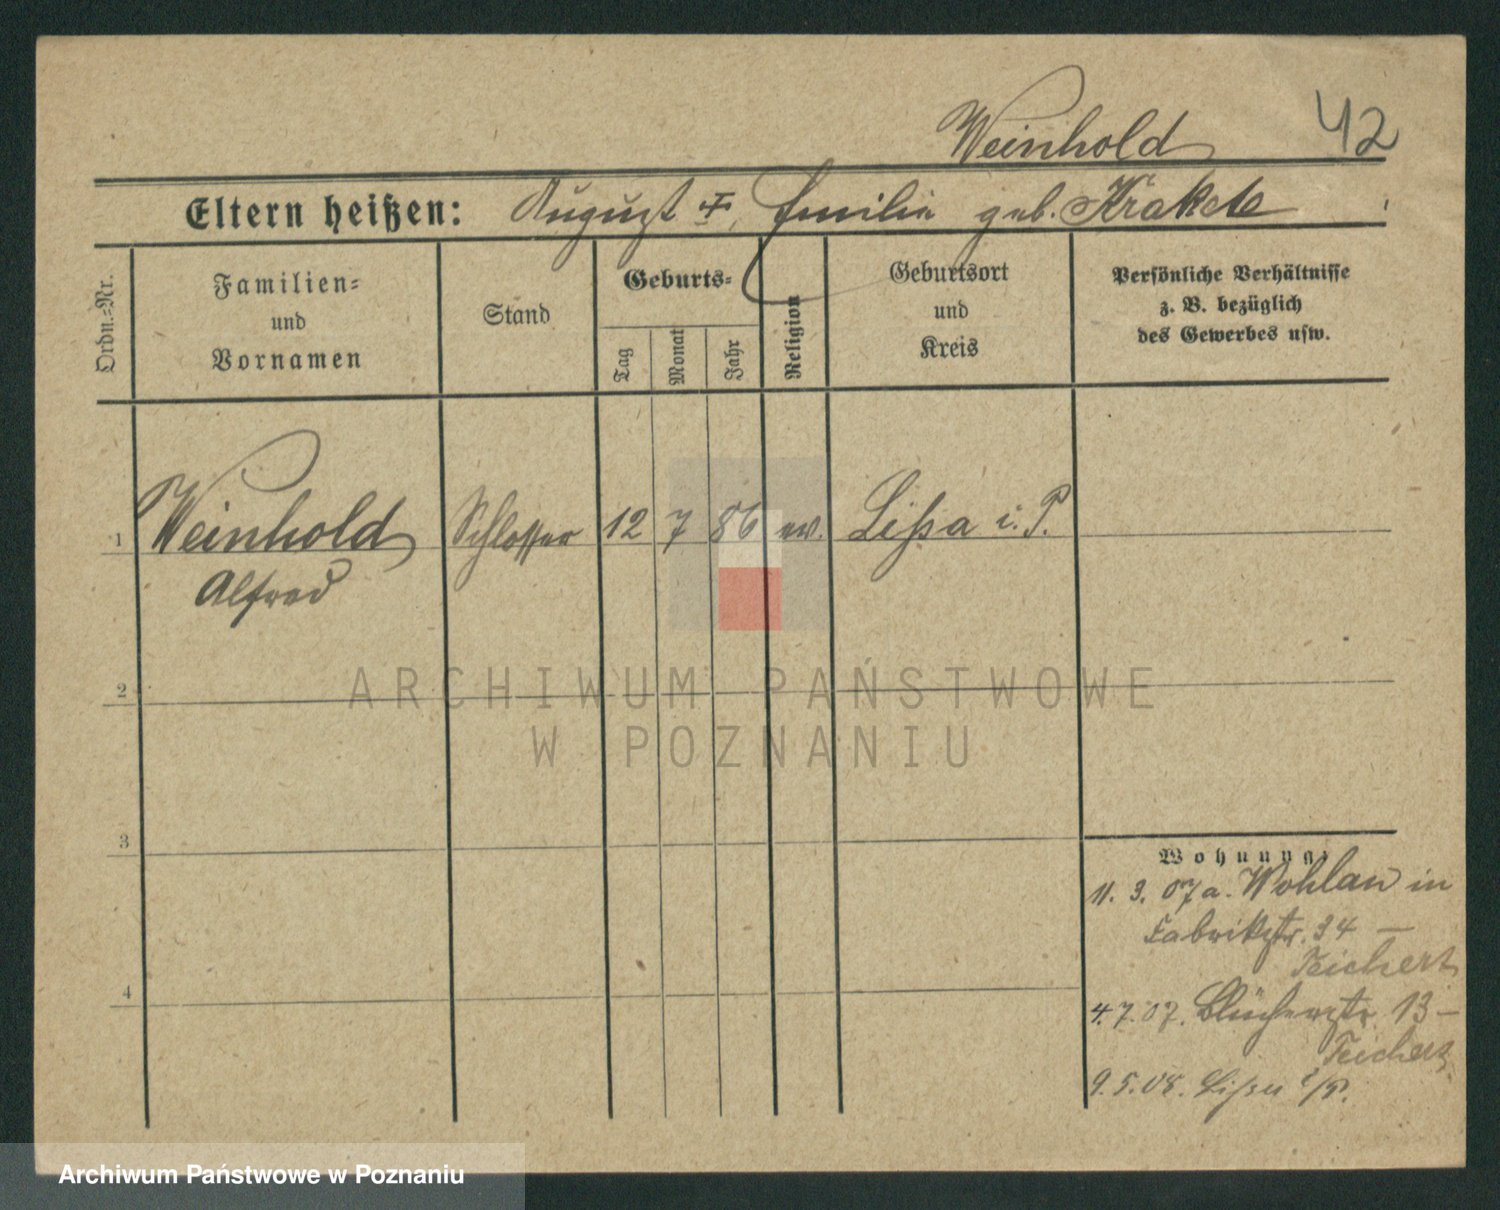 Weinhold
42
Eltern heißen: August †, Emilie geb. Krakete
Ordn.=Nr.
Familien=
und
Vornamen
Stand
Geburts=
Tag
Monat
Jahr
Religion
Geburtsort
und
Kreis
Persönliche Verhältnisse
z. B. bezüglich
des Gewerbes usw.
1 Weinhold Schlosser 12 7 86 ev. Lißa i. P.
Alfred
2
3
4
Wohnung:
11. 3. 07 a. Wohlau in
Fabrikstr. 34 —
Teichert
4. 7. 07. Blücherstr. 13 —
Teichert
9. 5. 08. Lissa i/P.
ARCHIWUM PAŃSTWOWE
W POZNANIU
Archiwum Państwowe w Poznaniu